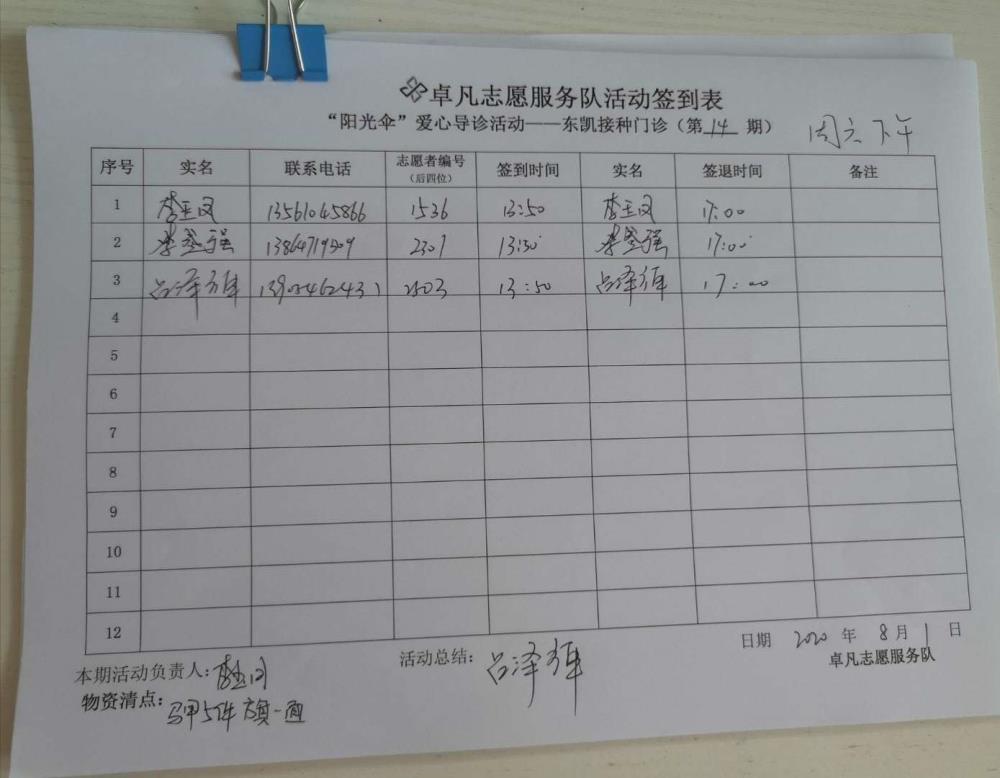 卓凡志愿服务队活动签到表
“阳光伞”爱心导诊活动——东凯接种门诊（第 14 期） 周六下午
序号 实名 联系电话 志愿者编号（后四位） 签到时间 实名 签退时间 备注
1 李玉凤 13561045866 1536 13:50 李玉凤 17:00
2 李登强 13864719509 2301 13:50 李登强 17:00
3 吕泽军 2503 13:50 吕泽军 17:00
4
5
6
7
8
9
10
11
12
日期 2020 年 8 月 1 日
本期活动负责人: 活动总结: 吕泽军
卓凡志愿服务队
物资清点: 马甲5件 旗一面